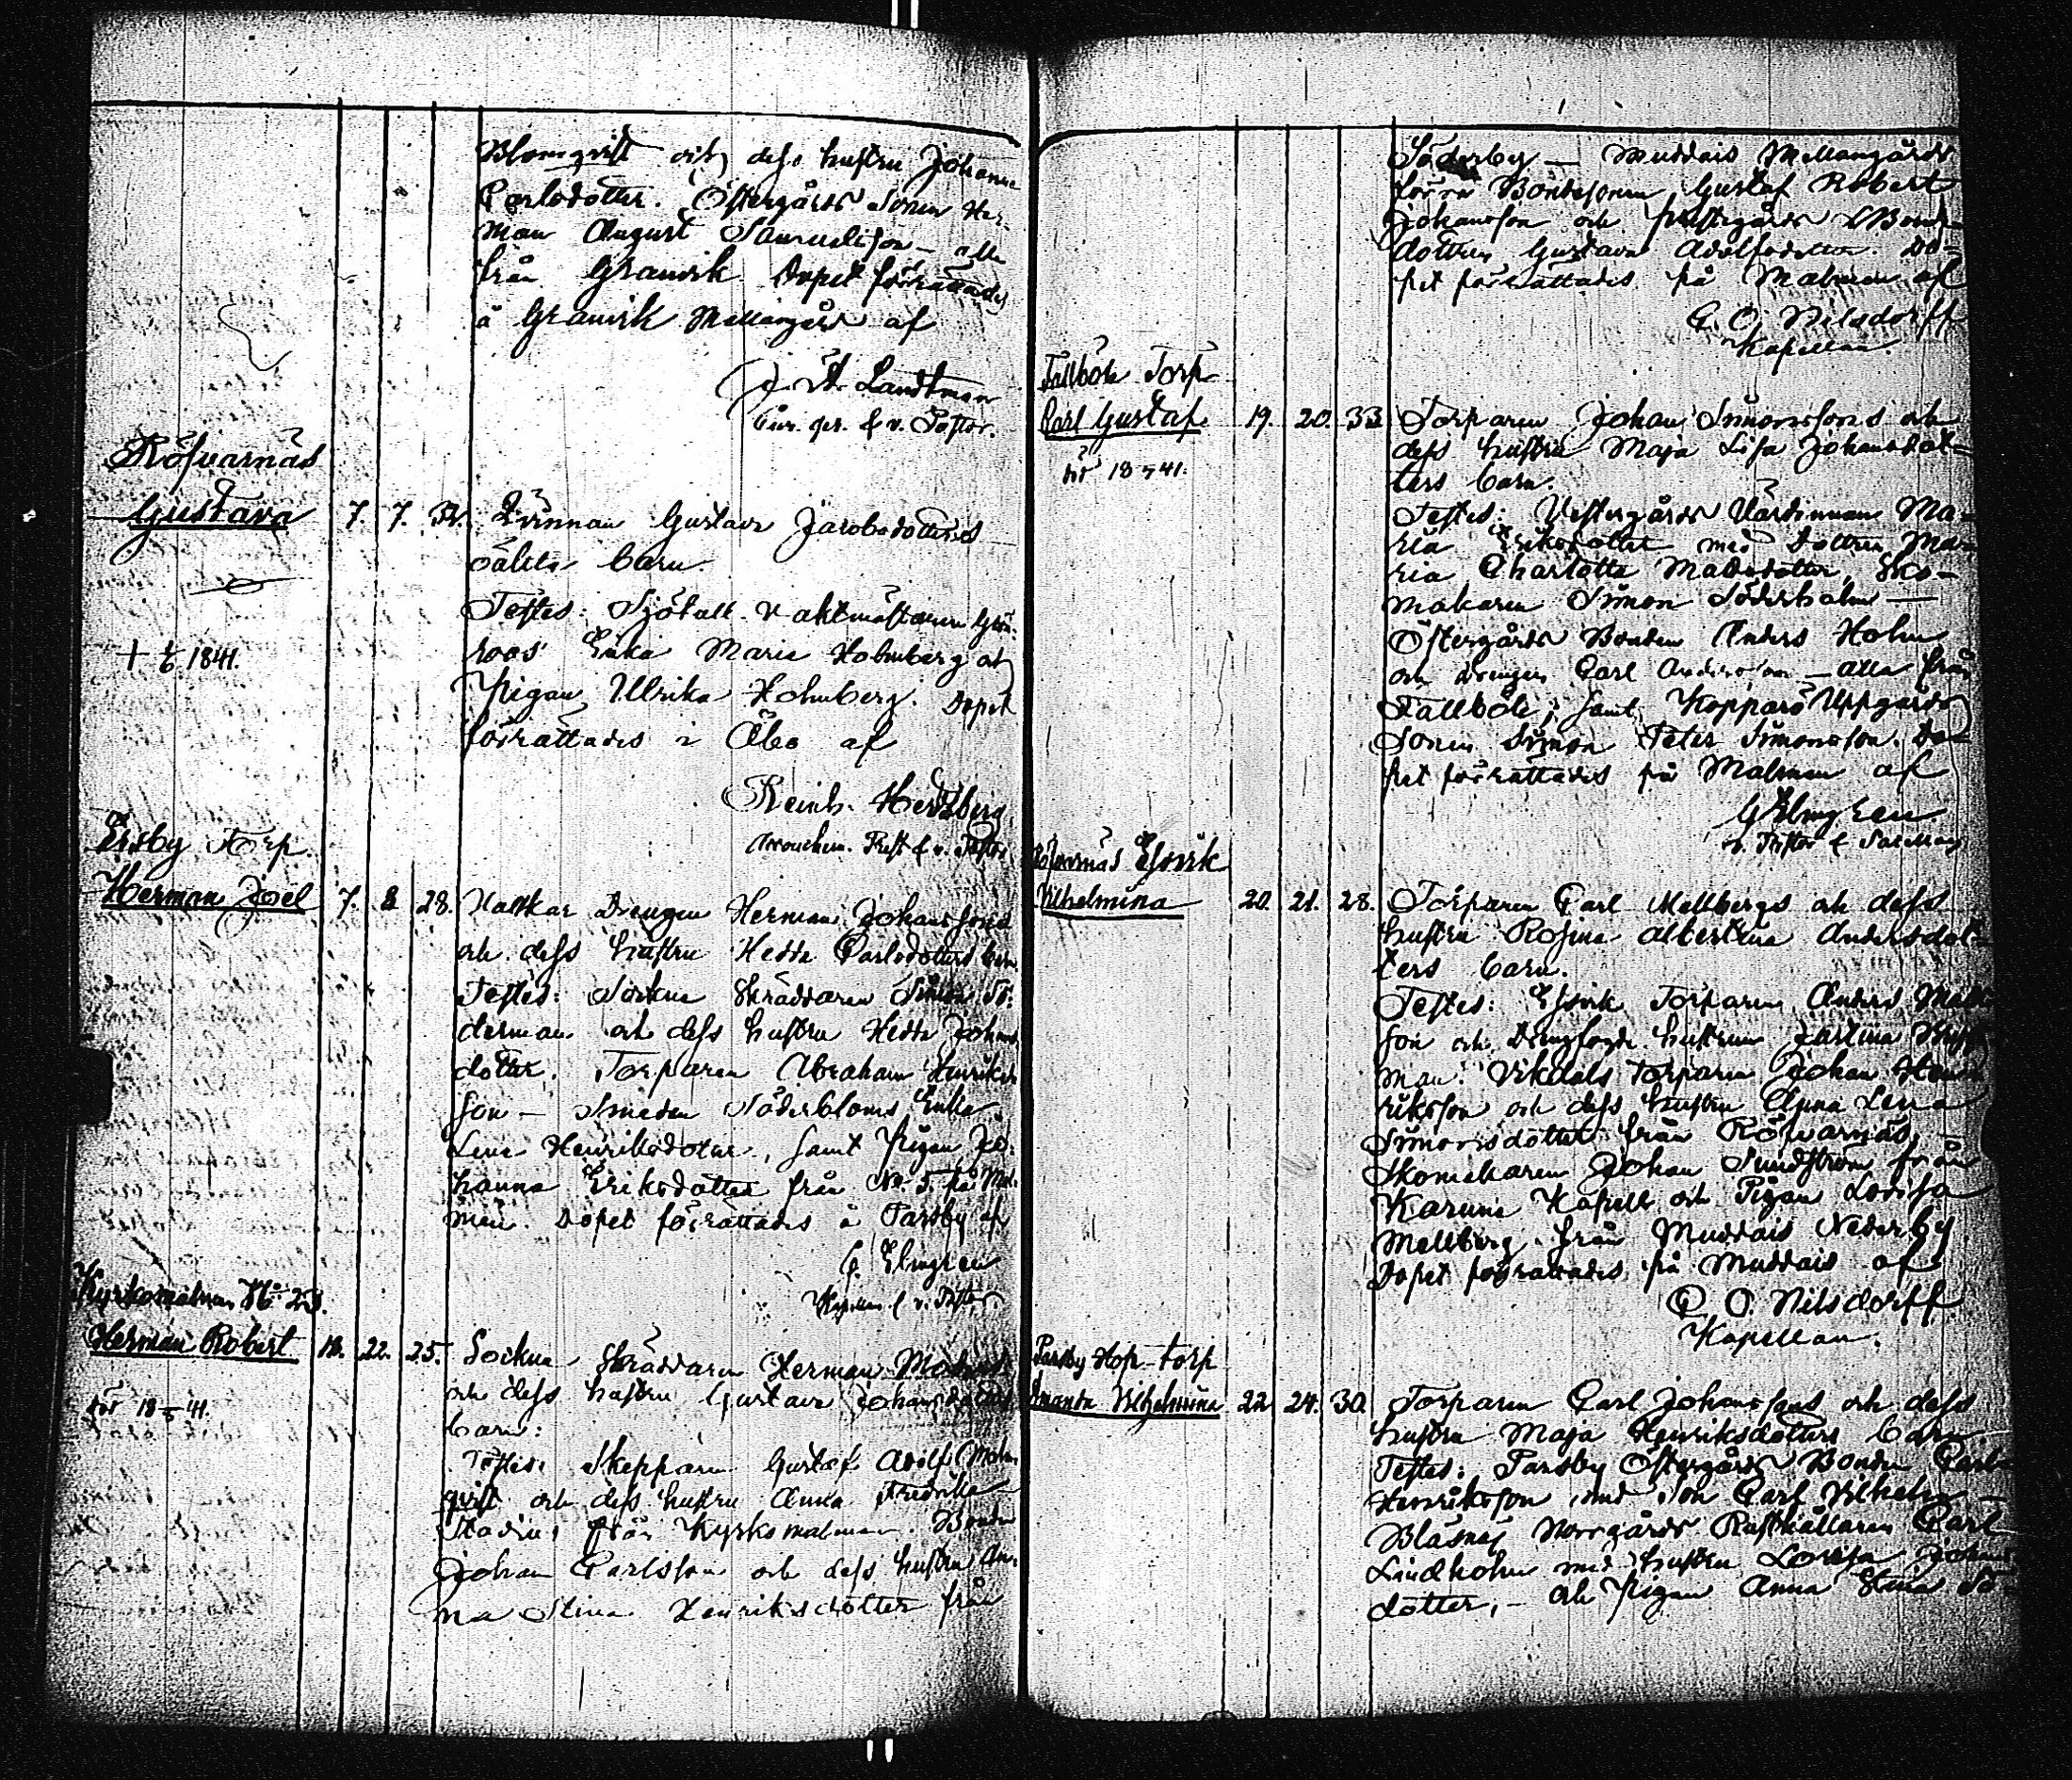 Blomqvist och dess hustru Johanna
Carlsdotter. Östergårds Sonen Her-
man August Samuelsson – alla
från Granvik Dopet förrättades
å Granvik Mellangård af
Landtman
v. Pastor.
Röfvarnäs
Gustava 7. 7. 32. Qvinnan Gustava Jacobsdotters
oäkta barn.
Testes: Sjötull Vaktmästaren Grön-
† 1841. roos Enka Maria Holmberg och
Pigan Ulrika Holmberg. Dopet
förrättades i Åbo af
Reinh. Hertzberg
v. Pastor
Ersby Torp.
Herman Joel 7. 8. 28. Drengen Herman Johanssons
och dess hustru Hedda Carlsdotters barn
Testes: Sockne Skräddaren Simon Sö-
derman och dess hustru Hedda Johans
dotter. Torparen Abraham Henriks
son – Smeden Söderbloms Enka
Lena Henriksdotter, samt Pigan Jo-
hanna Eriksdotter från No. 5. på Mal-
men. Dopet förrättades å Parsby af
G. Elmgren
Kapellan & v. Pastor.
Kyrkomalmen No 23.
Herman Robert 19. 22. 25. Sockne Skräddaren Herman
och dess hustru Gustava Johansdotters
41. barn:
Testes: Skepparen Gustaf Adolf Malm
qvist och dess hustru Anna Fredrika
Stadius från Kyrkomalmen. Bonden
Johan Carlsson och dess hustru An-
na Stina Henriksdotter från
Söderby – Muddais Mellangårds
förra Bondesonen Gustaf Robert
Johansson och Bonde
dottren Gustava Adolfsdotter. Do-
pet förrättades på Malmen af
C. O. Nilsdorff
Kapellan.
Fallböle Torp
Carl Gustaf 19. 20. 33. Torparen Johan Simonssons och
dess hustru Maja Lisa Johansdot-
41. ters barn.
Testes: Vestergårds Värdinnan Ma-
ria Eriksdotter med Dottren Ma-
ria Charlotta Matsdotter, Sko-
makaren Simon Söderholm –
Östergårds Bonden Anders Holm
och Drengen Carl Andersson – alla från
Fallböle; samt Kopparö Uppgårds
Sonen Simon Peter Simonsson. Do-
pet förrättades på Malmen af
G Elmgren
v. Pastor &
Röfvarnäs Elsvik
Vilhelmina 20. 21. 28. Torparen Carl Mellbergs och dess
hustru Rosina Albertina Andersdot-
ters barn.
Testes: Elsvik Torparen Anders Matts
son och Drengfogde hustrun
man. Vikdals Torparen Johan Hen-
riksson och dess hustru Anna Lena
Simonsdotter från Röfvarnäs, –
Skomakaren Johan Sundström från
Karuna Kapell och Pigan Lovisa
Mellberg från Muddais Nederby
Dopet förrättades på Muddais af
C. O. Nilsdorff
Kapellan.
Parsby Hop-torp
Amanda Vilhelmina 22. 24. 30. Torparen Carl Johanssons och dess
hustru Maja Henriksdotters barn
Testes: Parsby Östergårds Bonden Carl
Henriksson med Son Carl Vilhelm –
Bläsnäs Norrgårds Rusthållaren Carl
Lindholm med hustru Lovisa Johans
dotter, – och Pigan Anna Stina Sö-